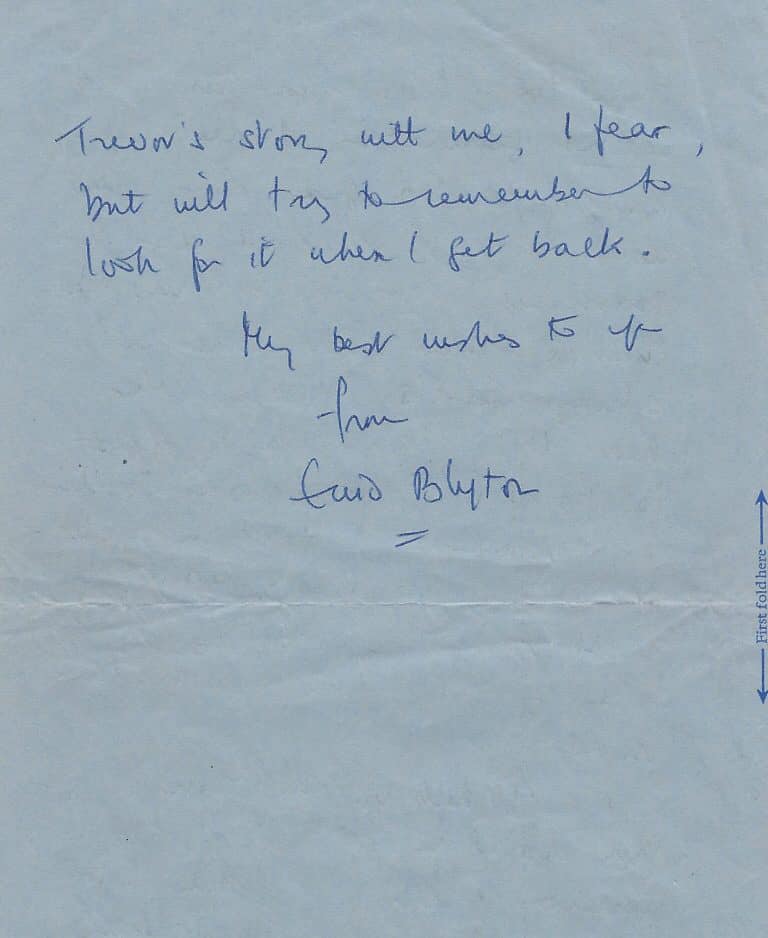 Trevor's story with me, I fear,
but will try to remember to
look for it when I get back.
My best wishes to you
from
Enid Blyton
First fold here